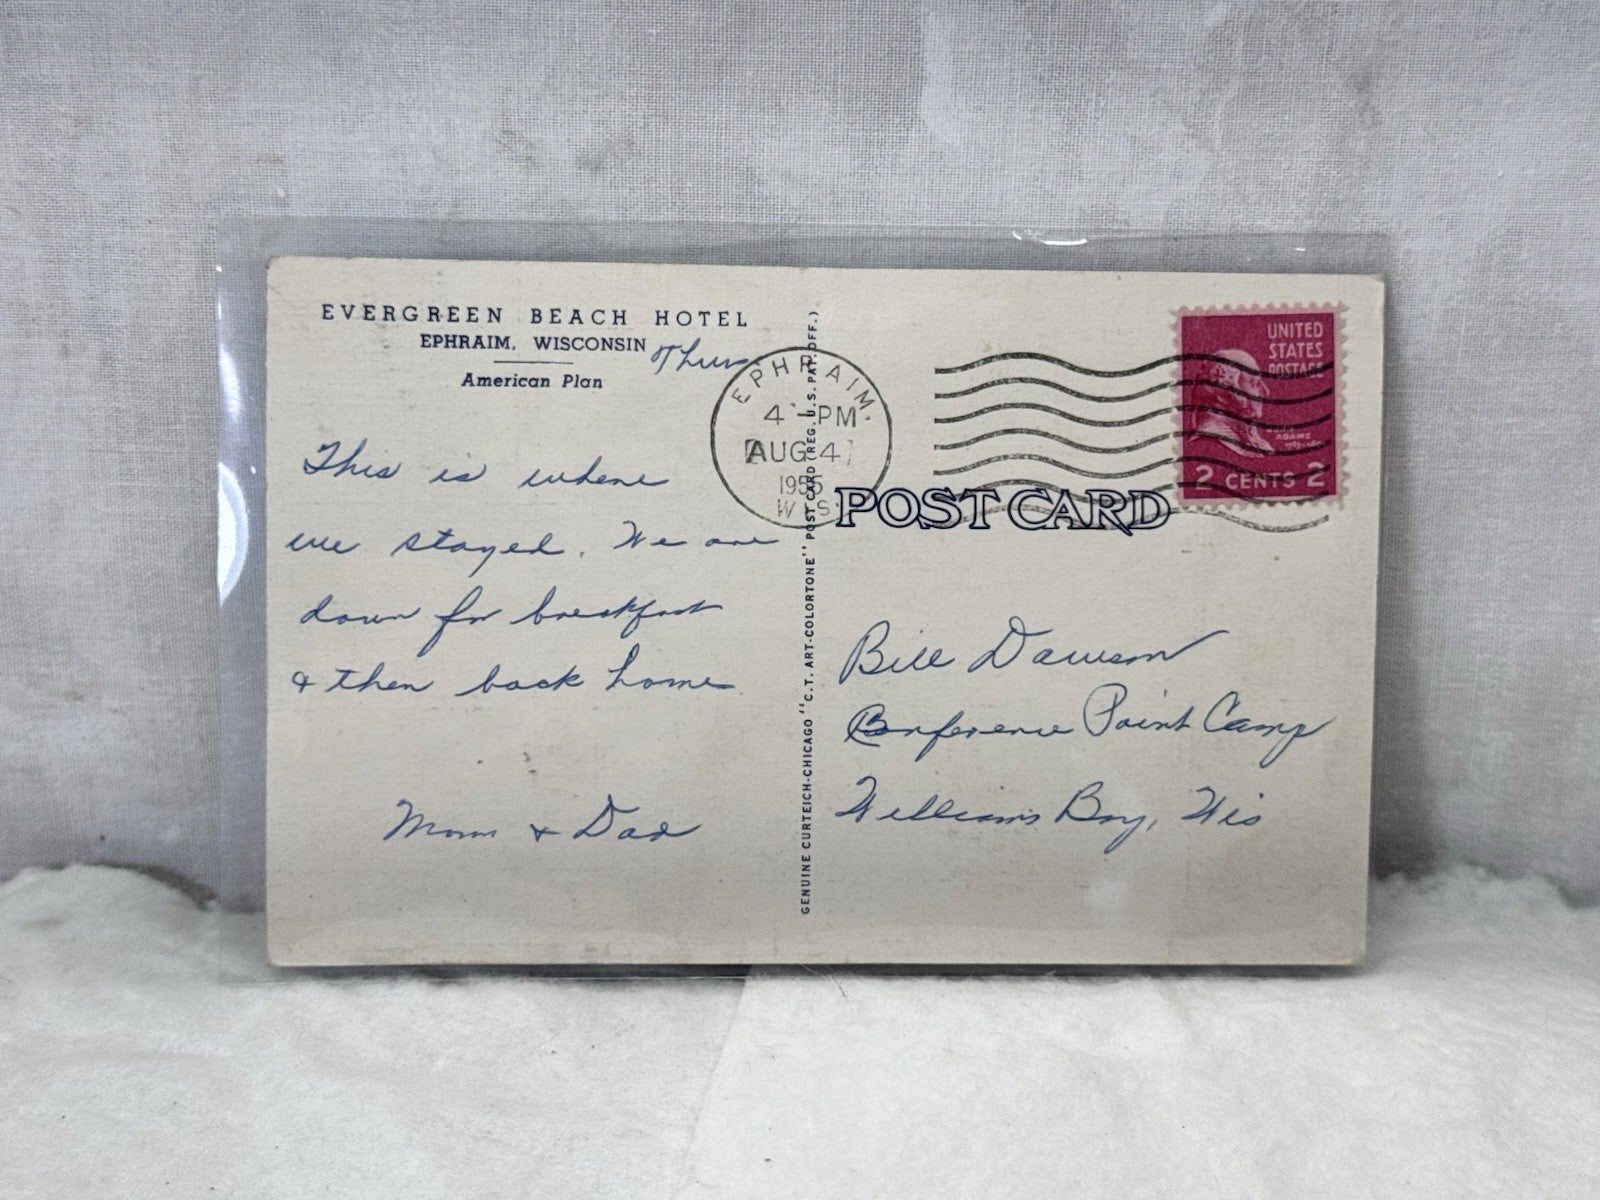 EVERGREEN BEACH HOTEL
EPHRAIM, WISCONSIN
American Plan
Thurs
This is where
we stayed. We are
down for breakfast
& then back home
Mom & Dad
GENUINE CURTEICH-CHICAGO "C.T. ART-COLORTONE" POST CARD (REG. U.S. PAT. OFF.)
EPHRAIM.
4 - PM
AUG 4
1955
WIS
POST CARD
UNITED
STATES
POSTAGE
ADAMS
2 CENTS 2
Bill Dawson
Conference Point Camp
Williams Bay, Wis